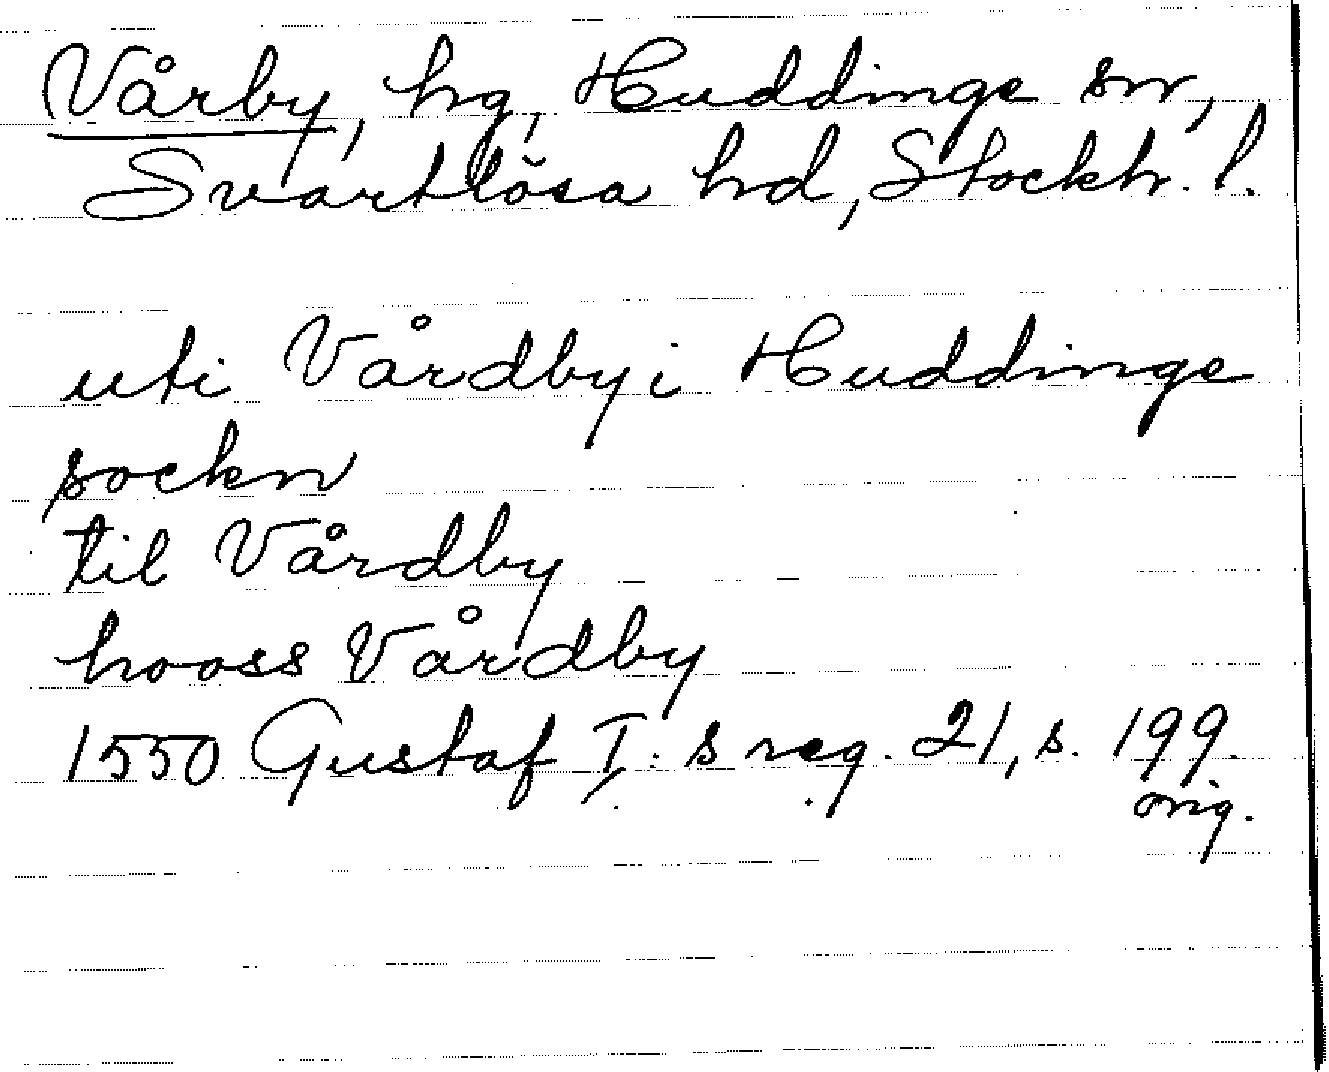 Vårby, hg, Huddinge sn,
Svartlösa hd, Stockh. l.
uti Vårdby i Huddinge
sockn
til Vårdby
hooss Vårdby
1550 Gustaf I: s reg. 21, s. 199.
orig.